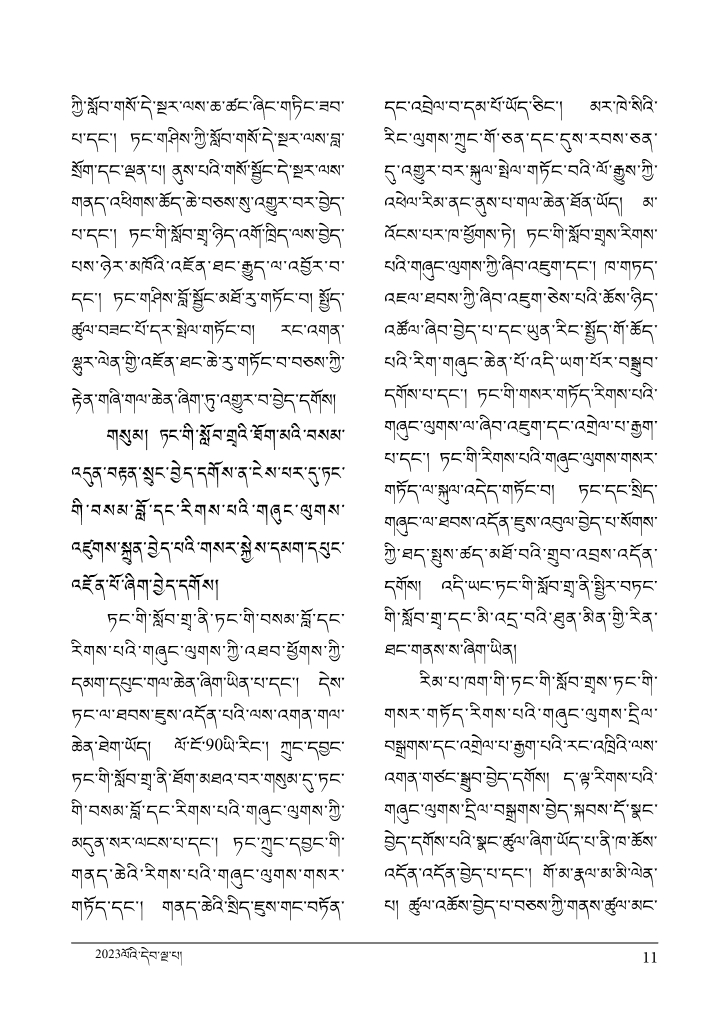 ཀྱི་སློབ་གསོ་དེ་སྔར་ལས་ཆ་ཚང་ཞིང་གཏིང་ཟབ་
པ་དང་། ཏང་གཤིས་ཀྱི་སློབ་གསོ་དེ་སྔར་ལས་བླ་
སྲོག་དང་ལྡན་པ། ནུས་པའི་གསོ་སྦྱོང་དེ་སྔར་ལས་
གནད་འཕིགས་ཚོད་ཆེ་བཅས་སུ་འགྱུར་བར་བྱེད་
པ་དང་། ཏང་གི་སློབ་གྲྭ་ཉིད་འགོ་ཁྲིད་ལས་བྱེད་
པས་ཉེར་མཁོའི་འཛོན་ཐང་རྒྱུད་ལ་འབྱོར་བ་
དང་། ཏང་གཤིས་བློ་སྦྱོང་མཐོ་རུ་གཏོང་བ། སྤྱོད་
ཚུལ་བཟང་པོ་དར་སྤེལ་གཏོང་བ། རང་འགན་
ལྷུར་ལེན་གྱི་འཛོན་ཐང་ཆེ་རུ་གཏོང་བ་བཅས་ཀྱི་
རྟེན་གཞི་གལ་ཆེན་ཞིག་ཏུ་འགྱུར་བ་བྱེད་དགོས།
གསུམ། ཏང་གི་སློབ་གྲྭའི་ཐོག་མའི་བསམ་
འདུན་བརྟན་སྲུང་བྱེད་དགོས་ན་ངེས་པར་དུ་ཏང་
གི་བསམ་བློ་དང་རིགས་པའི་གཞུང་ལུགས་
འཛུགས་སྐྲུན་བྱེད་པའི་གསར་སྐྱེས་དམག་དཔུང་
འཛོན་པོ་ཞིག་བྱེད་དགོས།
ཏང་གི་སློབ་གྲྭ་ནི་ཏང་གི་བསམ་བློ་དང་
རིགས་པའི་གཞུང་ལུགས་ཀྱི་འཐབ་ཕྱོགས་ཀྱི་
དམག་དཔུང་གལ་ཆེན་ཞིག་ཡིན་པ་དང་། དེས་
ཏང་ལ་ཐབས་ཇུས་འདོན་པའི་ལས་འགན་གལ་
ཆེན་ཐེག་ཡོད། ལོ་ངོ་90ཡི་རིང་། ཀྲུང་དབྱང་
ཏང་གི་སློབ་གྲྭ་ནི་ཐོག་མཐའ་བར་གསུམ་དུ་ཏང་
གི་བསམ་བློ་དང་རིགས་པའི་གཞུང་ལུགས་ཀྱི་
མདུན་སར་ལངས་པ་དང་། ཏང་ཀྲུང་དབྱང་གི་
གནད་ཆེའི་རིགས་པའི་གཞུང་ལུགས་གསར་
གཏོད་དང་། གནད་ཆེའི་སྲིད་ཇུས་གང་བཏོན་
དང་འབྲེལ་བ་དམ་པོ་ཡོད་ཅིང་། མར་ཁེ་སིའི་
རིང་ལུགས་ཀྲུང་གོ་ཅན་དང་དུས་རབས་ཅན་
དུ་འགྱུར་བར་སྐུལ་སྤེལ་གཏོང་བའི་ལོ་རྒྱུས་ཀྱི་
འཕེལ་རིམ་ནང་ནུས་པ་གལ་ཆེན་ཐོན་ཡོད། མ་
འོངས་པར་ཁ་ཕྱོགས་ཏེ། ཏང་གི་སློབ་གྲྭས་རིགས་
པའི་གཞུང་ལུགས་ཀྱི་ཞིབ་འཇུག་དང་། ཁ་གཏད་
འཇལ་ཐབས་ཀྱི་ཞིབ་འཇུག་ཅེས་པའི་ཆོས་ཉིད་
འཚོལ་ཞིབ་བྱེད་པ་དང་ཡུན་རིང་སྤྱོད་གོ་ཚོད་
པའི་རིག་གཞུང་ཆེན་པོ་འདི་ཡག་པོར་བསྒྲུབ་
དགོས་པ་དང་། ཏང་གི་གསར་གཏོད་རིགས་པའི་
གཞུང་ལུགས་ལ་ཞིབ་འཇུག་དང་འགྲེལ་པ་རྒྱག་
པ་དང་། ཏང་གི་རིགས་པའི་གཞུང་ལུགས་གསར་
གཏོད་ལ་སྐུལ་འདེད་གཏོང་བ། ཏང་དང་སྲིད་
གཞུང་ལ་ཐབས་འདོན་ཇུས་འབུལ་བྱེད་པ་སོགས་
ཀྱི་ཐད་སྤུས་ཚད་མཐོ་བའི་གྲུབ་འབྲས་འདོན་
དགོས། འདི་ཡང་ཏང་གི་སློབ་གྲྭ་ནི་སྤྱིར་བཏང་
གི་སློབ་གྲྭ་དང་མི་འདྲ་བའི་ཐུན་མིན་གྱི་རིན་
ཐང་གནས་ས་ཞིག་ཡིན།
རིམ་པ་ཁག་གི་ཏང་གི་སློབ་གྲྭས་ཏང་གི་
གསར་གཏོད་རིགས་པའི་གཞུང་ལུགས་དྲིལ་
བསྒྲགས་དང་འགྲེལ་པ་རྒྱག་པའི་རང་འཁྲིའི་ལས་
འགན་གཙང་སྒྲུབ་བྱེད་དགོས། ད་ལྟ་རིགས་པའི་
གཞུང་ལུགས་དྲིལ་བསྒྲགས་བྱེད་སྐབས་དོ་སྣང་
བྱེད་དགོས་པའི་སྣང་ཚུལ་ཞིག་ཡོད་པ་ནི་ཁ་ཆོས་
འདོན་འདོན་བྱེད་པ་དང་། གོ་མ་རྣལ་མ་མི་ལེན་
པ། ཚུལ་འཆོས་བྱེད་པ་བཅས་ཀྱི་གནས་ཚུལ་མང་
2023ལོའི་དེབ་ལྔ་པ།
11